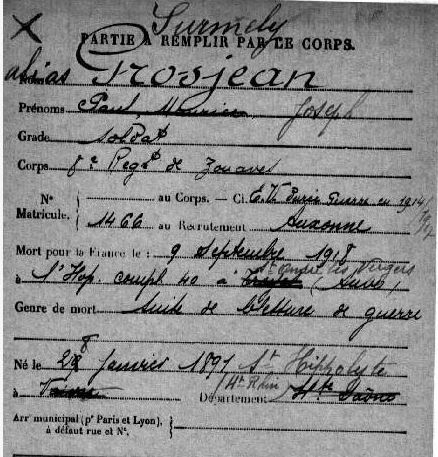 Surmely
PARTIE A REMPLIR PAR LE CORPS.
alias Grosjean
Prénoms Paul, Maurice, Joseph
Grade soldat
Corps 8e Regt de Zouaves
N° au Corps. — Cl. E. V. Durée Guerre en 1914
Matricule. 1466 au Recrutement Auxonne
Mort pour la France le : 9 Septembre 1918
St Ouen les Vergers
à l'Hop. compl 40 à (Aube)
Genre de mort Suite de blessure de guerre
8
Né le 28 janvier 1897 St Hippolyte
(Ht Rhin
à Département Hte Saône
Arr municipal (pr Paris et Lyon),
à défaut rue et N°.